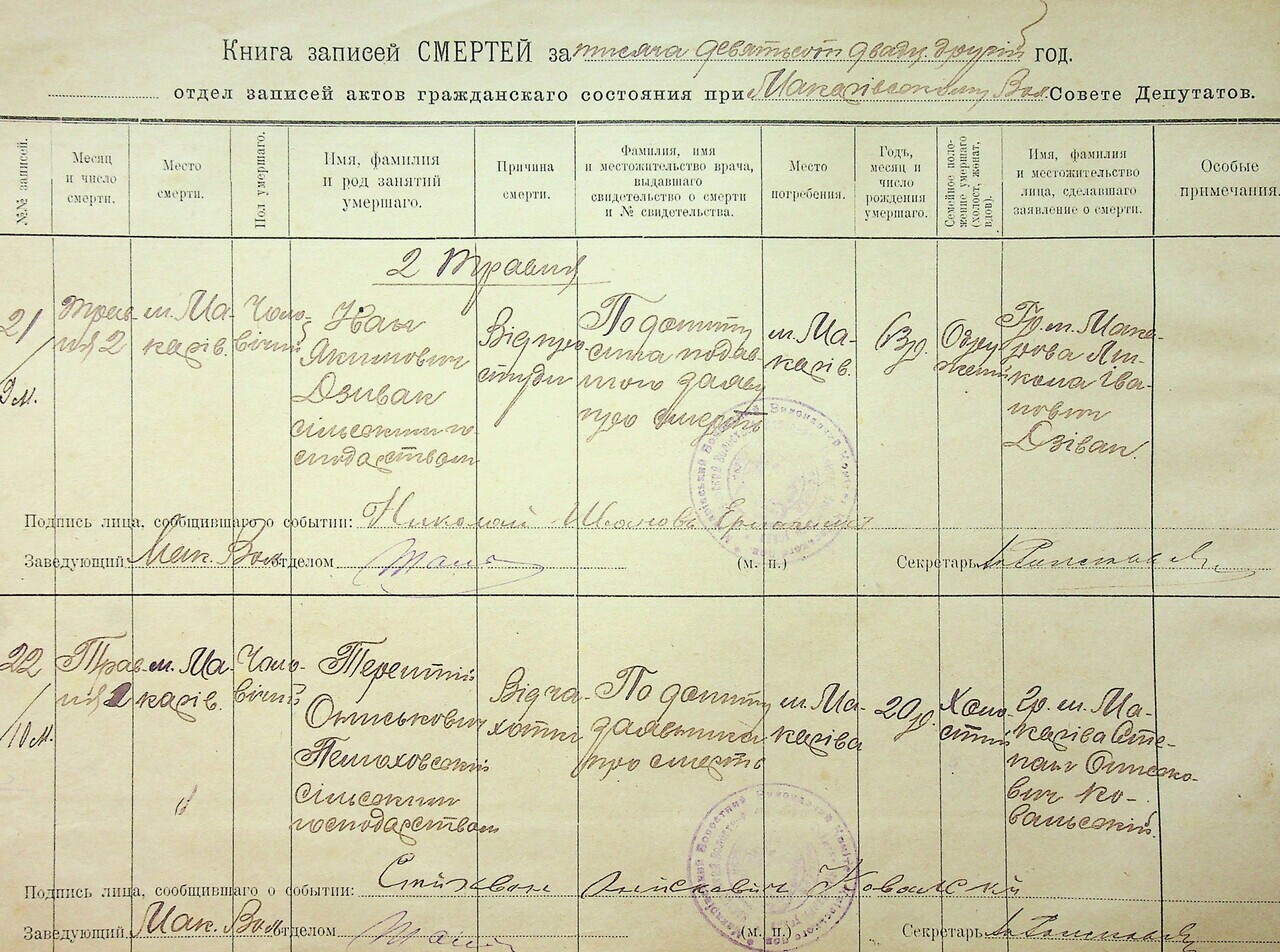 Книга записей СМЕРТЕЙ за тисяча девятьсот двадц. другій год.
отдел записей актов гражданскаго состояния при Макарівському Вол. Совете Депутатов.
№№ записей.
Месяц
и число
смерти.
Место
смерти.
Пол умершаго.
Имя, фамилия
и род занятий
умершаго.
Причина
смерти.
Фамилия, имя
и местожительство врача,
выдавшаго
свидетельство о смерти
и № свидетельства.
Место
погребения.
Годъ,
месяц и
число
рождения
умершаго.
Семейное поло-
жение умершаго
(холост, женат,
вдов).
Имя, фамилия
и местожительство
лица, сделавшаго
заявление о смерти.
Особые
примечания.
2 Травня
21
9 м.
Трав-
ня 2
м. Ма-
карів.
Чоло-
вічий
Иван
Якимович
Дзивак
сільським го-
сподарством
Від
По допиту
заяву
про смерть
м. Ма-
карів.
Одру-
жений
Гр. м. Мака-
рова Ми-
кола Іва-
нович
Дзіван.
Подпись лица, сообщившаго о событии: Николай
Заведующий Мак. Вол. отделом (м. п.) Секретарь
22
10 м.
Трав-
ня 2
м. Ма-
карів.
Чоло-
вічий
Терентій
Ониськович
сільским
господарством
Від су-
хоти
По допиту
заявника
про смерть
м. Ма-
каріва
20 р.
Холо-
стий
Гр. м. Ма-
каріва Сте-
пан Онисько-
вич Ко-
вальський.
Подпись лица, сообщившаго о событии: Ковалский
Заведующий Мак. Вол. отделом (м. п.) Секретарь